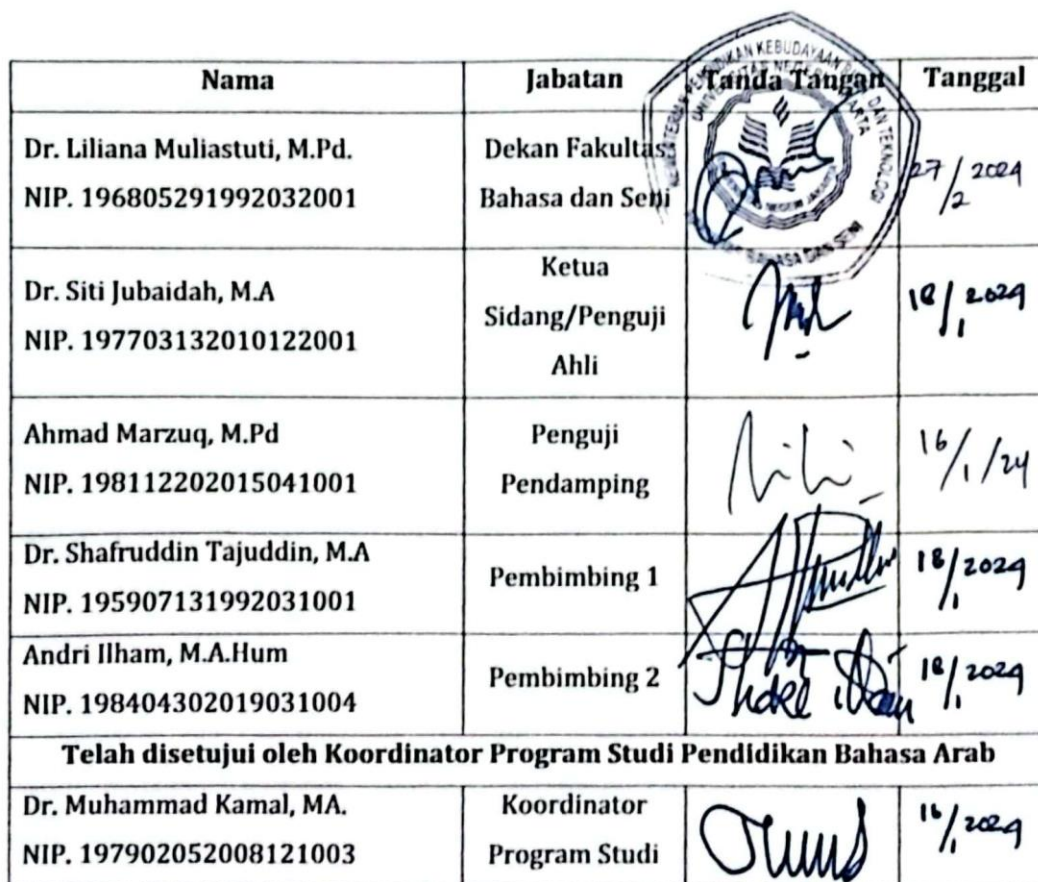 Nama Jabatan Tanda Tangan Tanggal
Dr. Liliana Muliastuti, M.Pd.
NIP. 196805291992032001
Dekan Fakultas
Bahasa dan Seni
27/2 2024
Dr. Siti Jubaidah, M.A
NIP. 197703132010122001
Ketua
Sidang/Penguji
Ahli
18/1 2024
Ahmad Marzuq, M.Pd
NIP. 198112202015041001
Penguji
Pendamping
16/1/24
Dr. Shafruddin Tajuddin, M.A
NIP. 195907131992031001
Pembimbing 1
18/1 2024
Andri Ilham, M.A.Hum
NIP. 198404302019031004
Pembimbing 2
18/1 2024
Telah disetujui oleh Koordinator Program Studi Pendidikan Bahasa Arab
Dr. Muhammad Kamal, MA.
NIP. 197902052008121003
Koordinator
Program Studi
16/1 2024